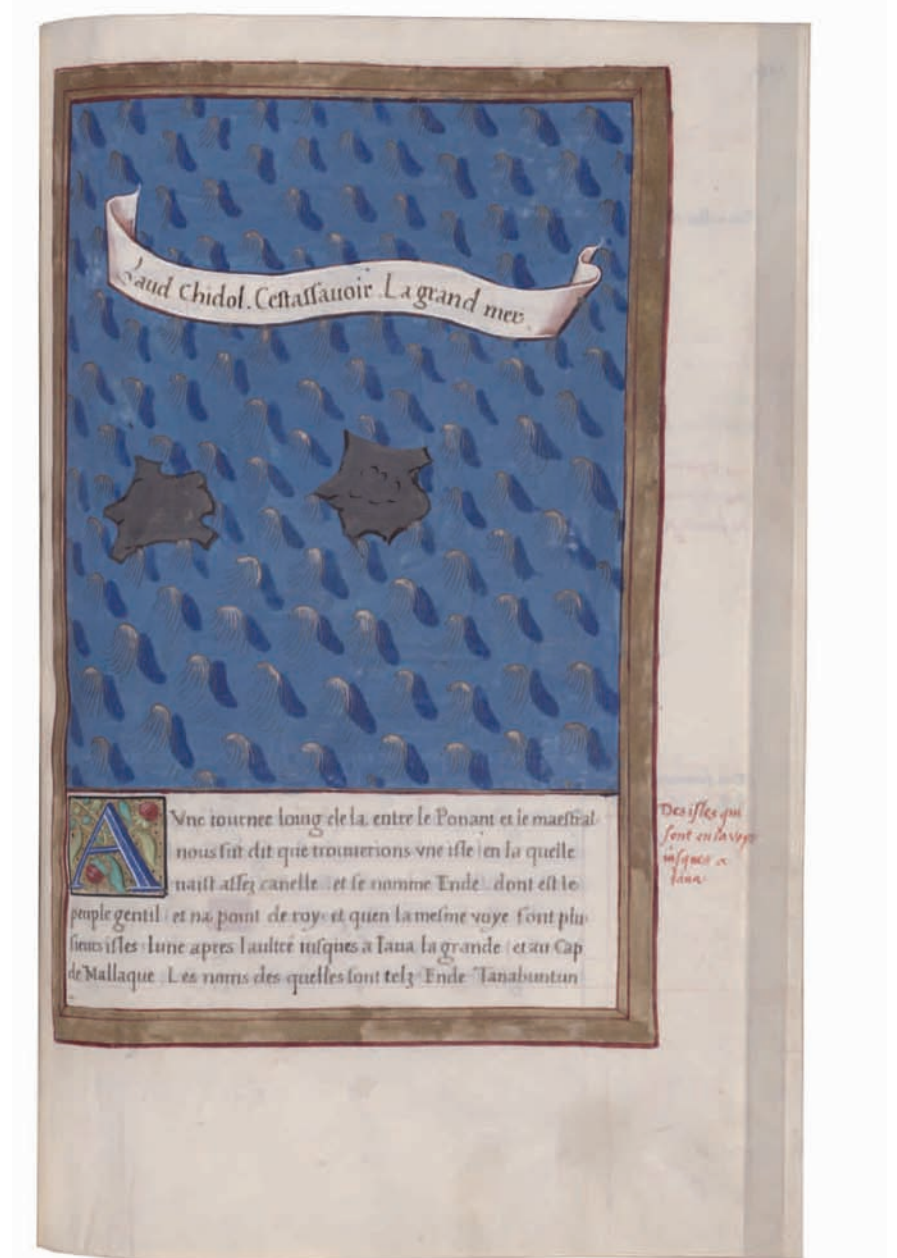 Laud Chidol. Cestassauoir. La grand mer.
A Vne iournee loing de la, entre le Ponant et le maestral
nous fut dit que trouuerions vne isle en la quelle
naist assez canelle et se nomme Ende dont est le
peuple gentil et na point de roy et quen la mesme voye sont plu
sieurs isles lune apres laultre iusques a Iaua la grande et au Cap
de Mallaque Les noms des quelles sont telz Ende Tanabuntun
Des isles qui
sont en la voye
iusques a
Iaua